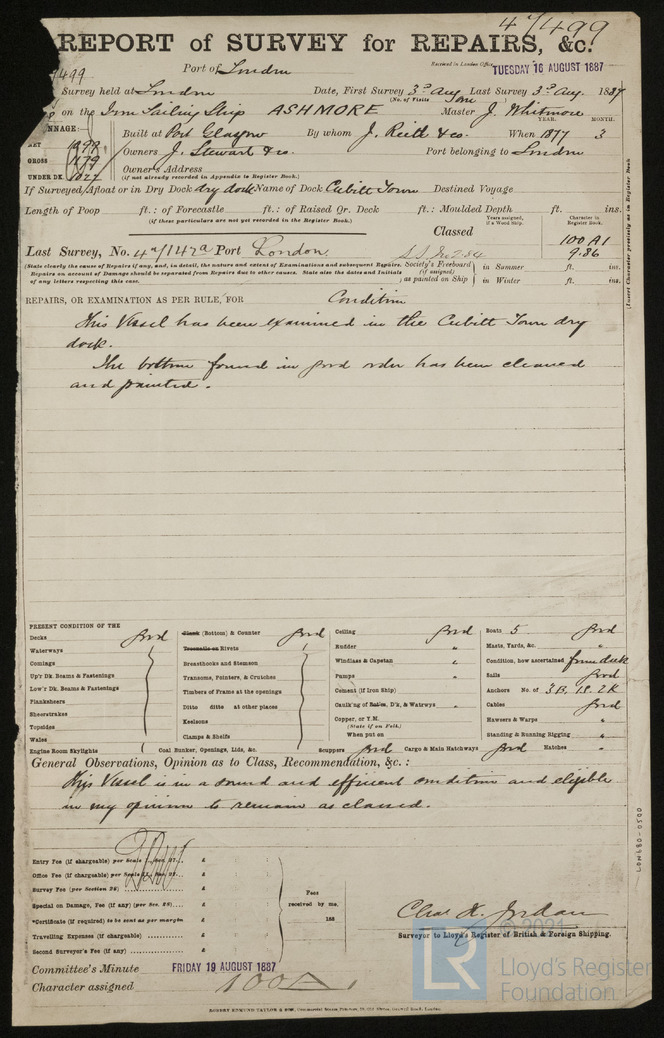 4a/499
REPORT of SURVEY for REPAIRS, &c.
Port of London
Received in London Office
TUESDAY 16 AUGUST 1887
499
Survey held at London Date, First Survey 3d Aug Last Survey 3d Aug. 1887
(No. of Visits One
on the Iron Sailing Ship ASHMORE Master J. Whitmore
NNAGE: YEAR. MONTH.
Built at Port Glasgow By whom J. Reid & Co. When 1877 3
NET 1099
GROSS 1179
UNDER DK. 1027
Owners J. Stewart & Co. Port belonging to London
Owner's Address
(if not already recorded in Appendix to Register Book.)
If Surveyed Afloat or in Dry Dock dry dock Name of Dock Cubitt Town Destined Voyage
Length of Poop ft.: of Forecastle ft.: of Raised Qr. Deck ft.: Moulded Depth ft. ins.
(if these particulars are not yet recorded in the Register Book.)
Years assigned, if a Wood Ship.
Character in Register Book.
Classed
100 A1
9.86
Last Survey, No. 4a/142a Port London
(State clearly the cause of Repairs if any, and, in detail, the nature and extent of Examinations and subsequent Repairs.
Repairs on account of Damage should be separated from Repairs due to other causes. State also the dates and Initials
of any letters respecting this case.
Society's Freeboard (if assigned) ; as painted on Ship
in Summer ft. ins.
in Winter ft. ins.
(Insert Character precisely as in Register Book
REPAIRS, OR EXAMINATION AS PER RULE, FOR Condition
This Vessel has been examined in the Cubitt Town dry
dock.
The bottom found in good order has been cleaned
and painted.
PRESENT CONDITION OF THE
Decks good
Waterways
Comings
Up'r Dk. Beams & Fastenings
Low'r Dk. Beams & Fastenings
Planksheers
Sheerstrakes
Topsides
Wales
Engine Room Skylights
(Bottom) & Counter good
Treenails or Rivets
Breasthooks and Stemson
Transoms, Pointers, & Crutches
Timbers of Frame at the openings
Ditto ditto at other places
Keelsons
Clamps & Shelfs
Coal Bunker, Openings, Lids, &c.
Ceiling good
Rudder "
Windlass & Capstan "
Pumps "
Cement (if Iron Ship)
Caulk'ng of D'k, & Watrwys "
Copper, or Y.M.
(State if on Felt.)
When put on
Scuppers good Cargo & Main Hatchways good Hatches "
Boats 5 good
Masts, Yards, &c. "
Condition, how ascertained from deck
Sails good
Anchors No. of 3B. 1S. 2K
Cables good
Hawsers & Warps "
Standing & Running Rigging "
General Observations, Opinion as to Class, Recommendation, &c.:
This Vessel is in a sound and efficient condition and eligible
in my opinion to remain as classed.
Entry Fee (if chargeable) per Scale £
Office Fee (if chargeable) per Scale £
Survey Fee (per Section 28) £
Special on Damage, Fee (if any) (per Sec. 28). £
*Certificate (if required) to be sent as per margin £
Travelling Expenses (if chargeable) £
Second Surveyor's Fee (if any) £
Fees
received by me,
188
Chas. H. Jordan
Surveyor to Lloyd's Register of British & Foreign Shipping.
Committee's Minute FRIDAY 19 AUGUST 1887
Character assigned 100A1
LON680-0590
© 2021
LR Lloyd's Register
Foundation